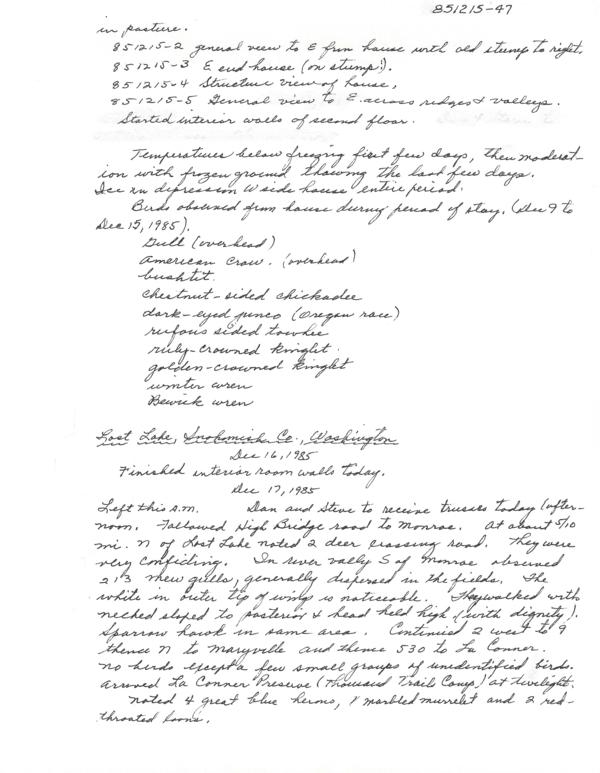 851215-47
in pasture.
851215-2 general view to E from house with old stump to right.
851215-3 E end house (on stump?).
851215-4 Structure view of house,
851215-5 General view to E. across ridges & valleys.
Started interior walls of second floor.
Temperatures below freezing first few days, then moderat-
ion with frozen ground thawing the last few days.
Ice in depression W side house entire period.
Birds observed from house during period of stay. (Dec 9 to
Dec 15, 1985).
Gull (overhead)
American Crow. (overhead)
bushtit.
chestnut-sided chickadee
dark-eyed junco (Oregon race)
rufous sided towhee
ruby-crowned kinglet.
golden-crowned kinglet
winter wren
Bewick wren
Lost Lake, Snohomish Co., Washington
Dec 16, 1985
Finished interior room walls today.
Dec 17, 1985
Left this a.m. Dan and Steve to receive trusses today (after-
noon. Followed High Bridge road to Monroe. At about 5/10
mi. N of Lost Lake noted 2 deer crossing road. They were
very confiding. In river vally S of Monroe observed
2 mew gulls, generally dispersed in the fields. The
white in outer tip of wings is noticeable. They walked with
necked sloped to posterior & head held high (with dignity).
Sparrow hawk in same area. Continued 2 west to 9
thence N to Maryville and thence 530 to La Conner.
no birds except a few small groups of unidentified birds.
arrived La Conner Preserve (Thousand Trails Camp) at twilight.
noted 4 great blue herons, 1 marbled murrelet and 2 red-
throated loons.